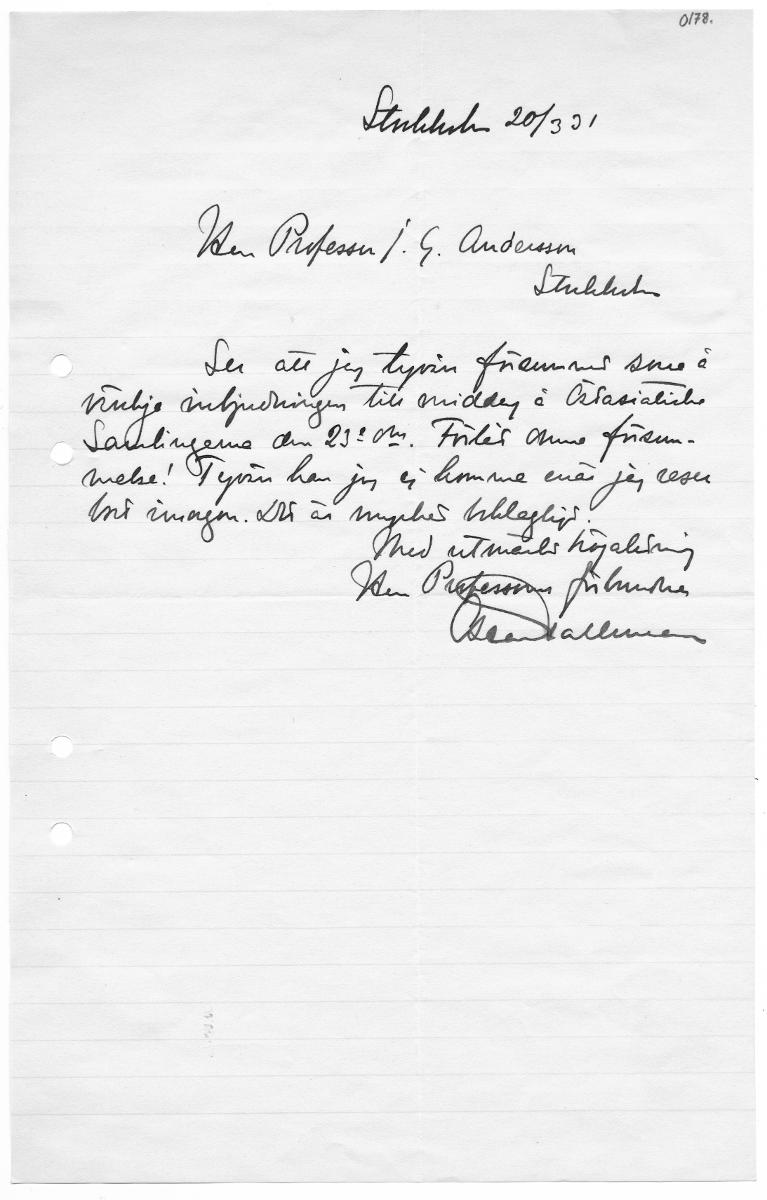 0178.
Stockholm 20/3 31
Herr Professor J. G. Andersson
Stockholm
Ser att jag tyvärr försummat svara å
vänliga inbjudningen till middag å Östasiatiska
Samlingarna den 23:e ds. Förlåt denna försum-
melse! Tyvärr kan jag ej komma enär jag reser
bort imorgon. Det är mycket beklagligt.
Med utmärkt högaktning
Herr Professorns förbundne